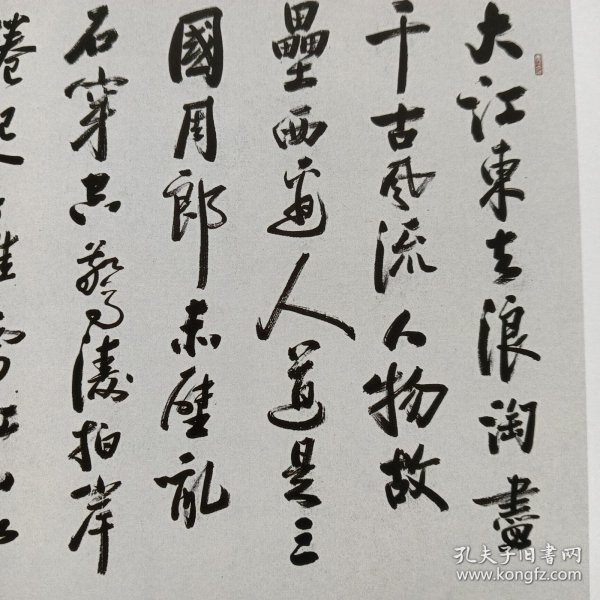 大江東去浪淘盡
千古風流人物故
壘西邊人道是三
國周郎赤壁亂
石穿空驚濤拍岸
捲起千堆雪江山如
孔夫子旧书网
www.kongfz.com